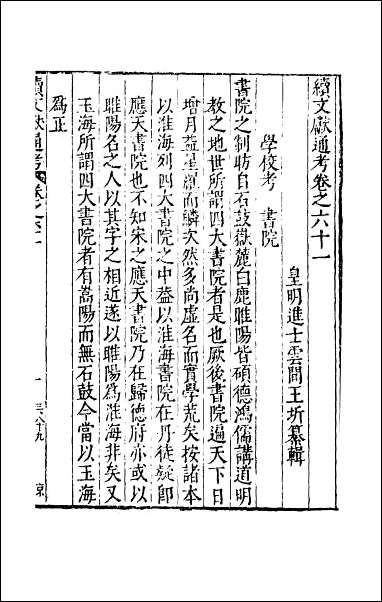 續文獻通考卷之六十一
皇明進士雲間王圻纂輯
學校考　書院
書院之制昉自石鼓嶽麓白鹿睢陽皆碩德鴻儒講道明
教之地世所謂四大書院者是也厥後書院遍天下日
增月益星羅而鱗次然多尚虛名而實學荒矣按諸本
以淮海列四大書院之中益以淮海書院在丹徒疑即
應天書院也不知宋之應天書院乃在歸德府亦或以
睢陽名之人以其字之相近遂以睢陽為淮海非矣又
玉海所謂四大書院者有嵩陽而無石鼓今當以玉海
為正
續文獻通考　卷之六十一
一